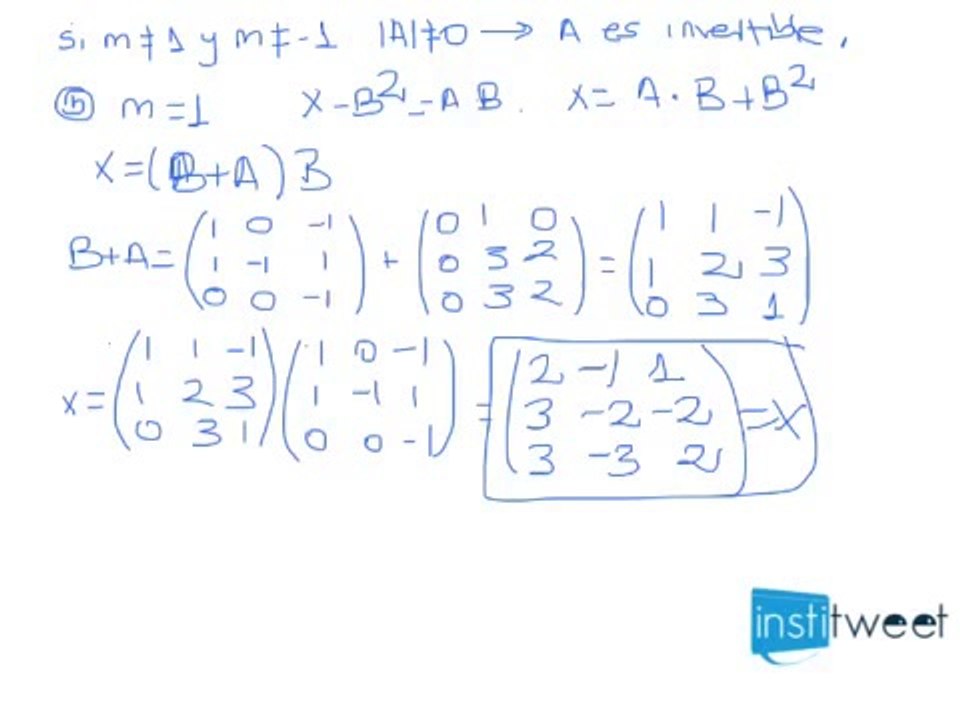 si m ≠ 1 y m ≠ -1 |A| ≠ 0 → A es invertible,
(b) m = 1 X - B² = A B. X = A · B + B²
X = (B + A) B
B+A = (1 0 -1; 1 -1 1; 0 0 -1) + (0 1 0; 0 3 2; 0 3 2) = (1 1 -1; 1 2 3; 0 3 1)
X = (1 1 -1; 1 2 3; 0 3 1) (1 0 -1; 1 -1 1; 0 0 -1) = (2 -1 1; 3 -2 -2; 3 -3 2) = X
institweet